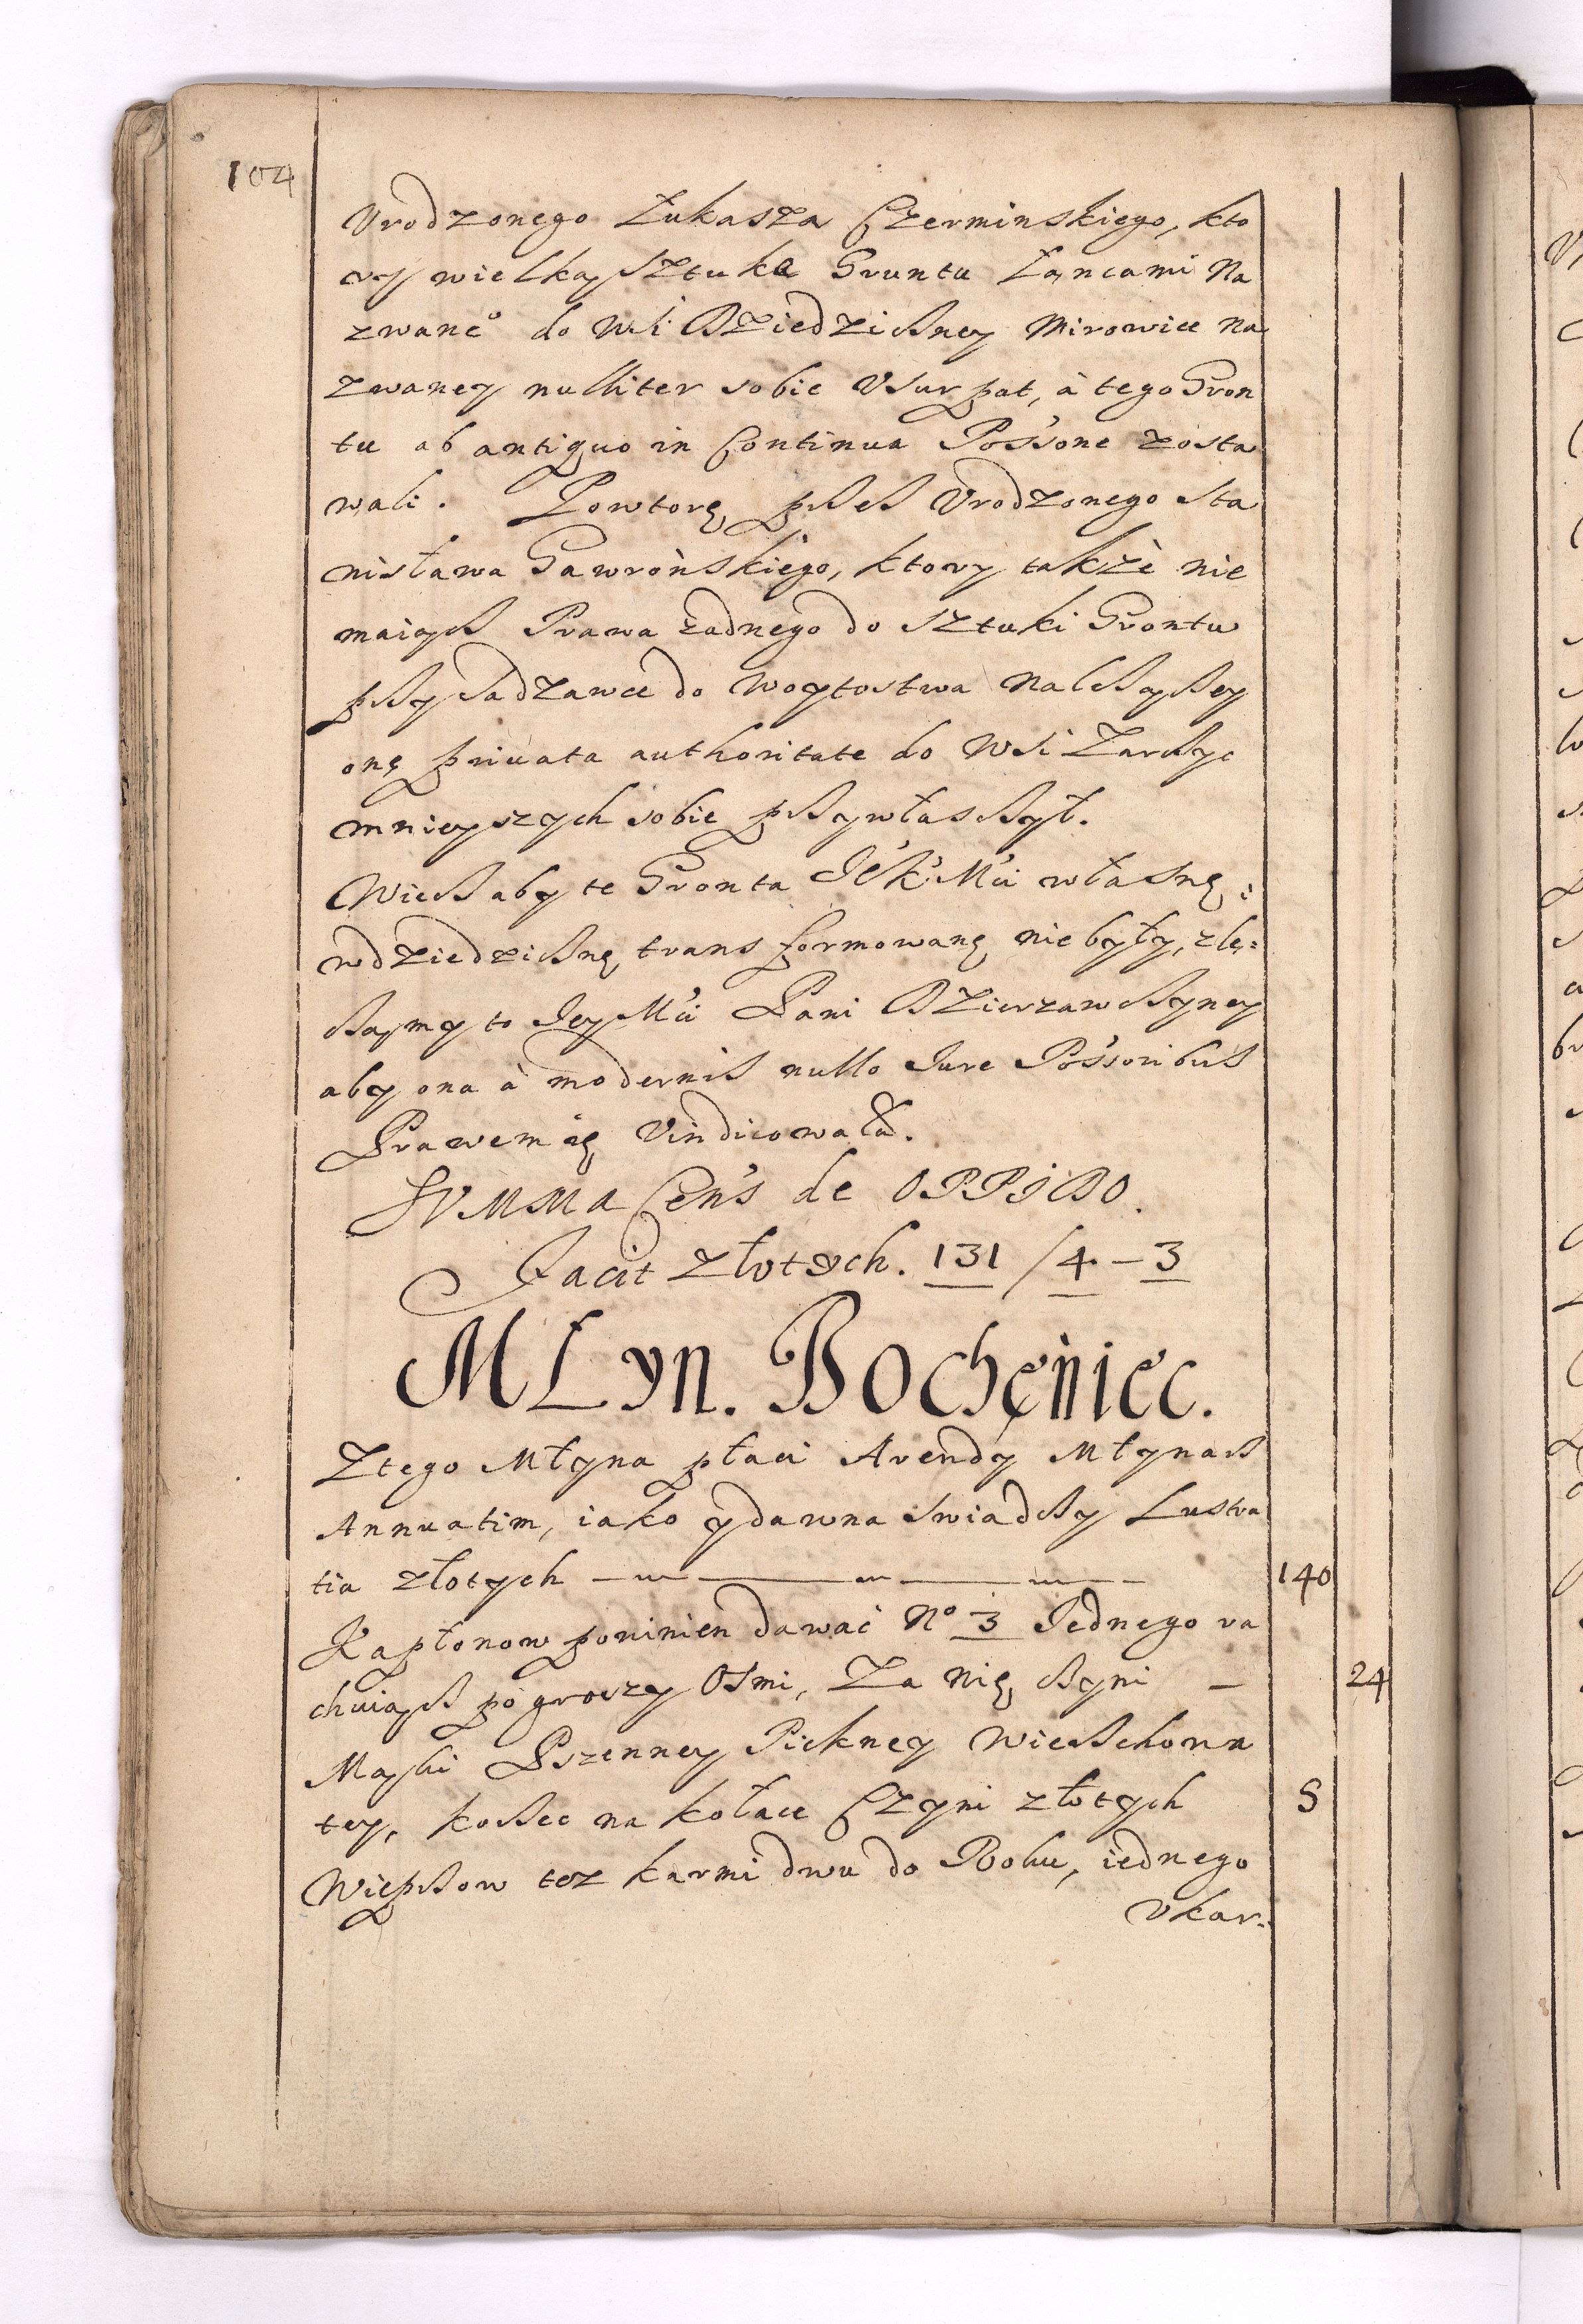 104
Vrodzonego Łukasza Czerminskiego, kto
ry wielką sztukę Gruntu Łąncami Na
zwaneº do Wsi Dziedziczney Mirowice na
zwaney nulliter sobie Vsurpat, à tego Gron
tu ab antiquo in Continua Poss'one zosta
wali. Powtorę przez Vrodzonego Sta
nisława Gawrońskiego, ktory takżè nie
maiącz Prawa żadnego do sztuki Grontu
przy Sadzawce do Woytostwa Nalczączey
onę priuata authoritate do Wsi Zarczyc
mnieyszych sobie przywłasczył.
Wiecz aby te Gronta JéK'M'ci własnę,
w dziedzicznę, transformowanę nie były, zle:
czamy to JeyM'ci Pani Dzierzawczyney
aby ona à modernis nullo Jure Poss'oribus
Prawem ię Vindicowała.
SVMMA Cens de OPPiDO.
Facit złotych. 131 / 4 - 3
MŁyn. Bochęniec.
Ztego Młyna płaci Arendy Młynarz
Annuatim, iako y dawna swiadczy Lustra
tia złotych 140
Kapłonow powinien dawać Nº 3 Jednego ra
chuiącz po groszy Osmi, Za Nię, czyni — 24
Mąki Pszenney Pickney Wierzchowa
tey, korzec na kołace Czyni złotych 8
Wieprzow tez karmi dwu do Roku, iednego
Vkar: